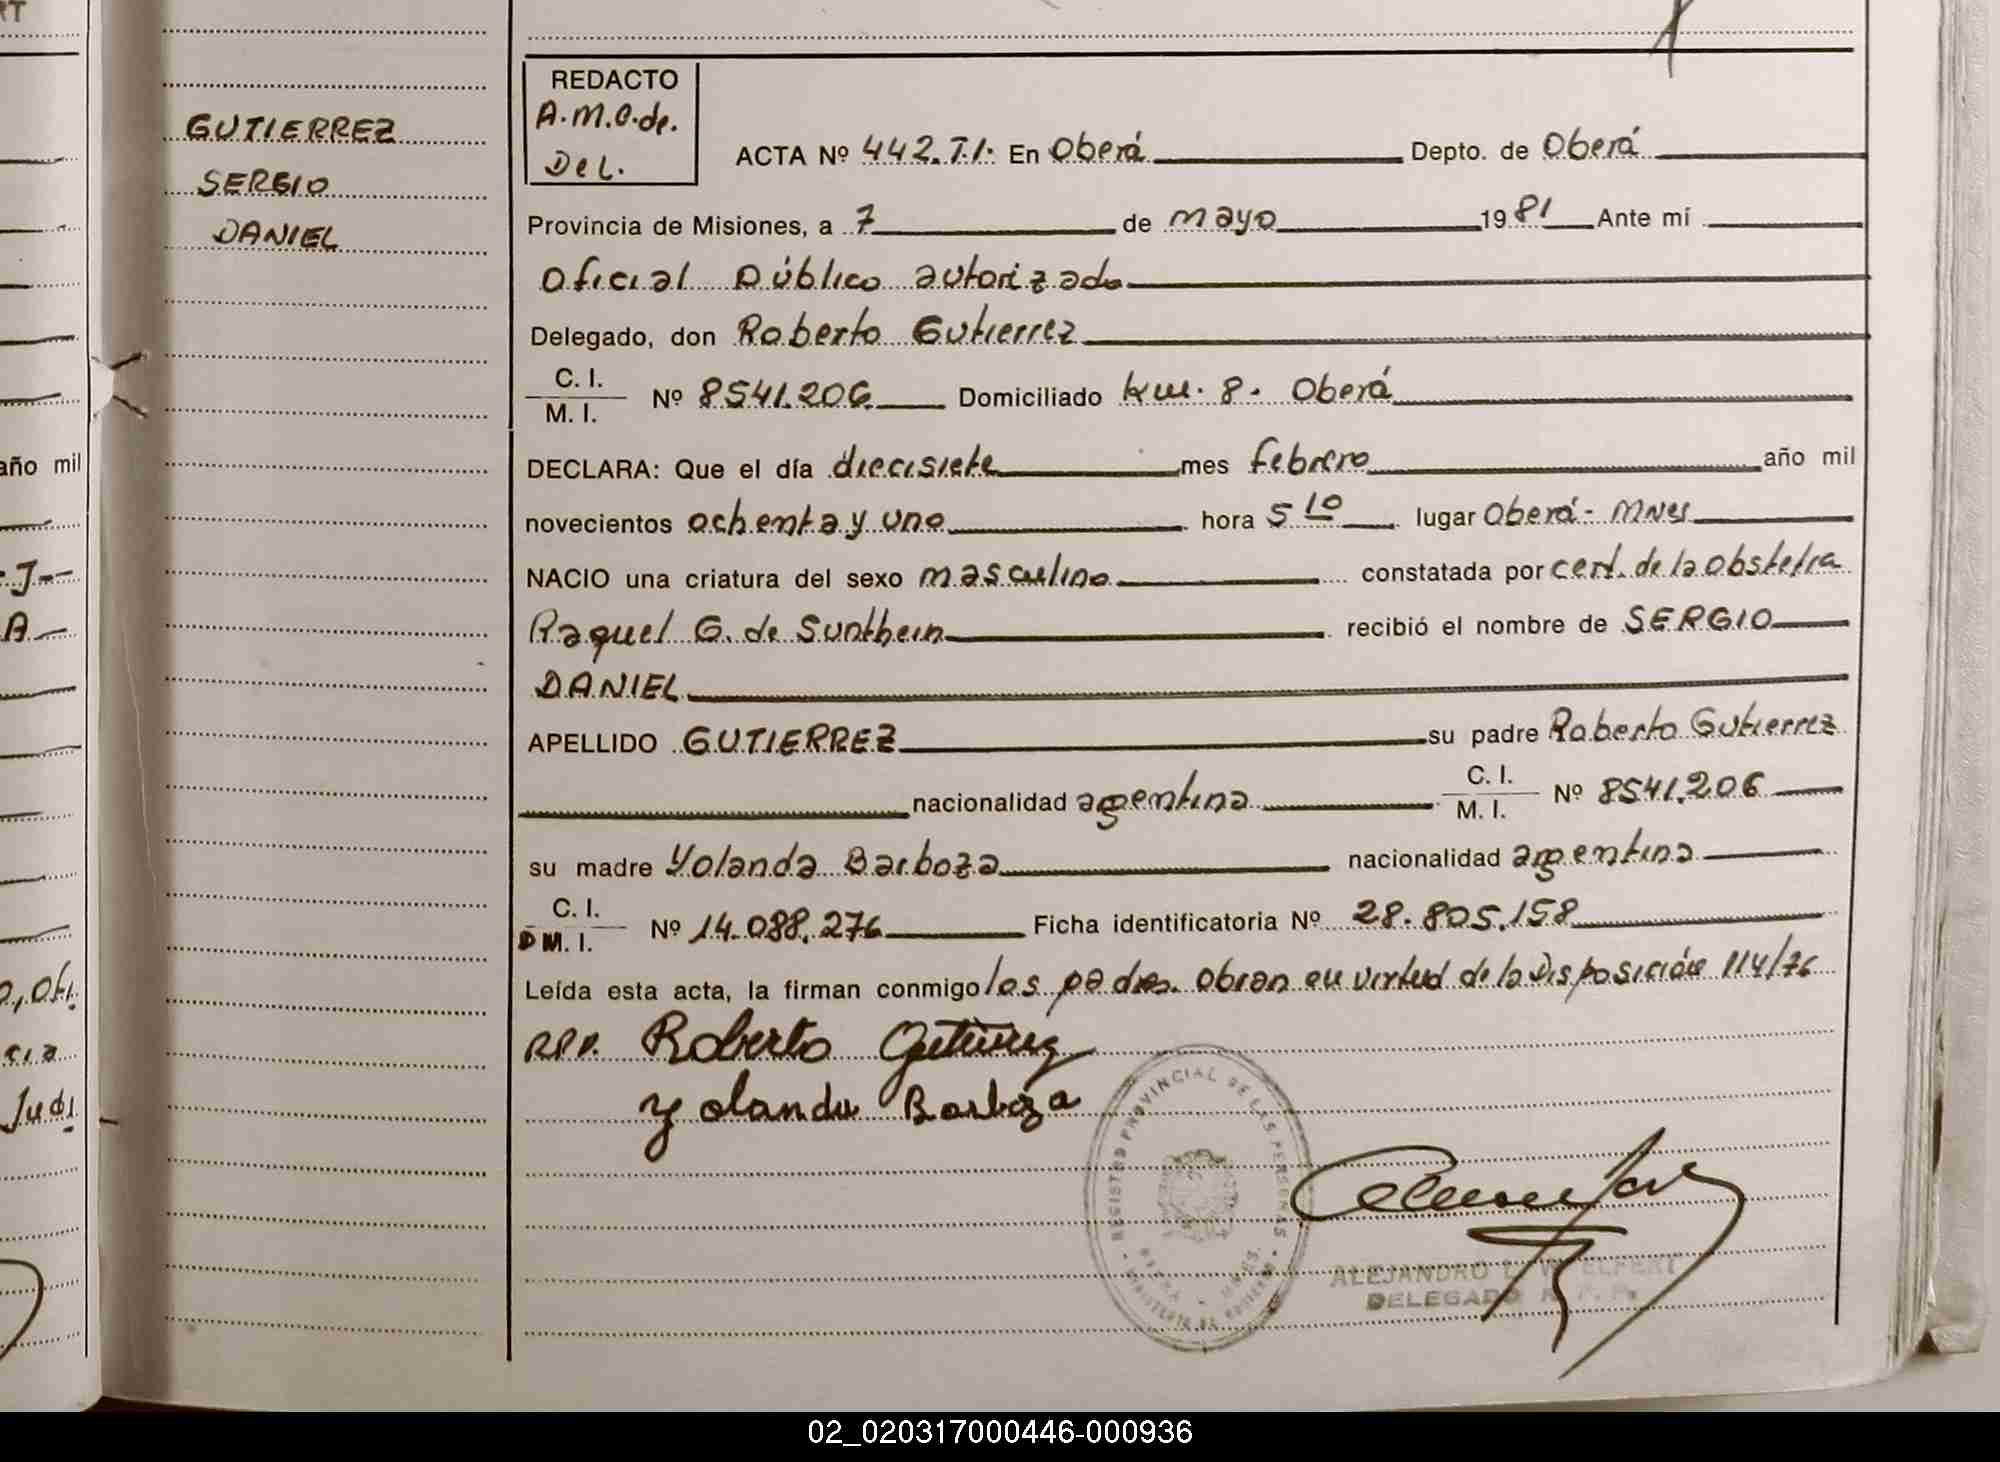 RT
GUTIERREZ
SERGIO
DANIEL
año mil
J
A
cia
Judi
REDACTO
A.M.O.de.
Del.
ACTA Nº 442.T.I. En Oberá Depto. de Oberá
Provincia de Misiones, a 7 de mayo 1981 Ante mí
Oficial Público autorizado
Delegado, don Roberto Gutierrez
C. I.
M. I. Nº 8541.206 Domiciliado Km. 8. Oberá
DECLARA: Que el día diecisiete mes febrero año mil
novecientos ochenta y uno hora 5 10 lugar Oberá - Mnes
NACIO una criatura del sexo masculino constatada por cert. de la obstetra
Raquel G. de Sunthein recibió el nombre de SERGIO
DANIEL
APELLIDO GUTIERREZ su padre Roberto Gutierrez
nacionalidad argentina C. I. M. I. Nº 8541.206
su madre Yolanda Barboza nacionalidad argentina
C. I.
D M. I. Nº 14.088.276 Ficha identificatoria Nº 28.805.158
Leída esta acta, la firman conmigo los padres. Obran en virtud de la Disposición 114/76
RPP. Roberto Gutierrez
Yolanda Barboza
REGISTRO PROVINCIAL DE LAS PERSONAS
MINISTERIO DE GOBIERNO
ALEJANDRO L. WELFERT
DELEGADO R. P. P.
02_020317000446-000936